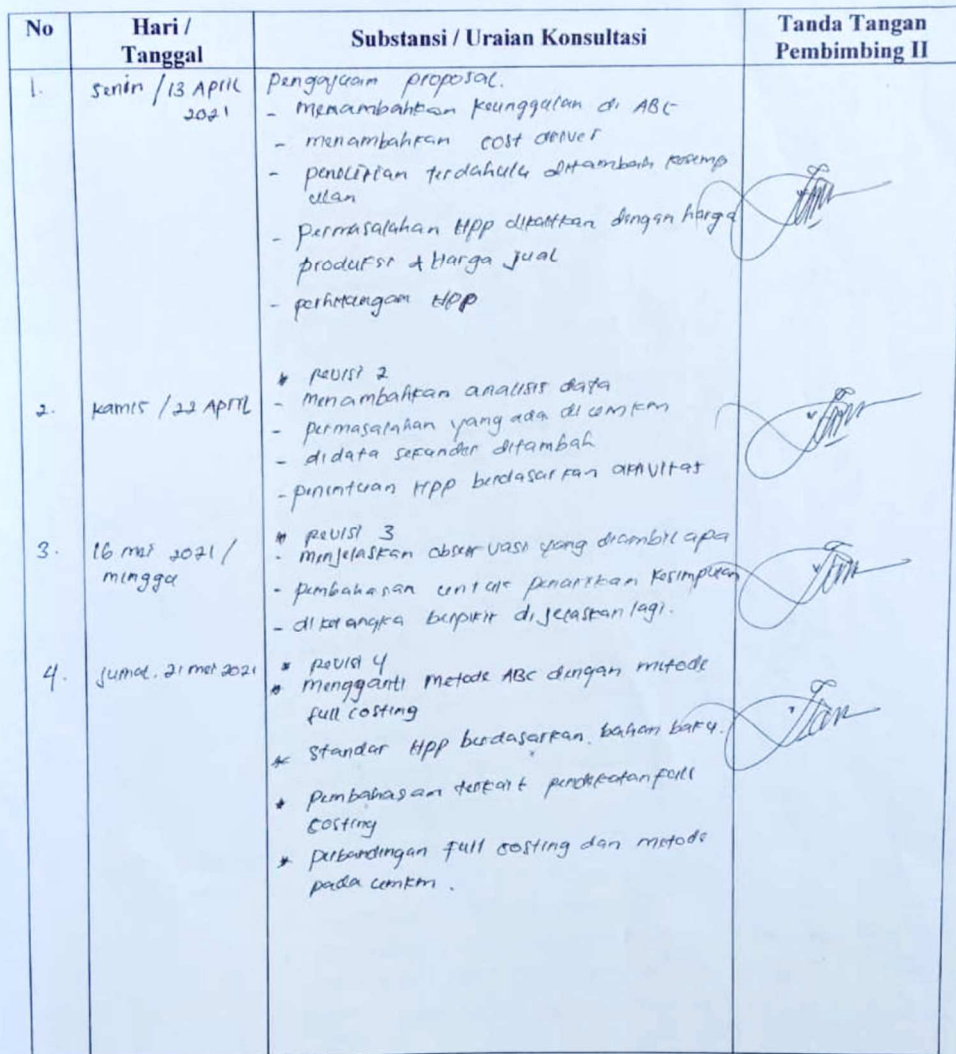 No
Hari /
Tanggal
Substansi / Uraian Konsultasi
Tanda Tangan
Pembimbing II
1.
Senin / 13 April
2021
Pengajuan proposal.
- menambahkan keunggulan di ABC
- menambahkan cost driver
- penelitian terdahulu ditambah kesimp
ulan
- permasalahan HPP dikaitkan dengan harga
produksi & Harga jual
- perhitungan HPP
2.
Kamis / 22 April
* Revisi 2
- menambahkan analisis data
- permasalahan yang ada di umkm
- didata sekunder ditambah
- penentuan HPP berdasarkan aktivitas
3.
16 mei 2021 /
minggu
* Revisi 3
- menjelaskan observasi yang diambil apa
- pembahasan untuk penarikan kesimpulan
- di kerangka berpikir dijelaskan lagi.
4.
Jumat, 21 mei 2021
* Revisi 4
* mengganti metode ABC dengan metode
full costing
* standar HPP berdasarkan bahan baku.
* pembahasan terkait pendekatan full
costing
* perbandingan full costing dan metode
pada umkm.